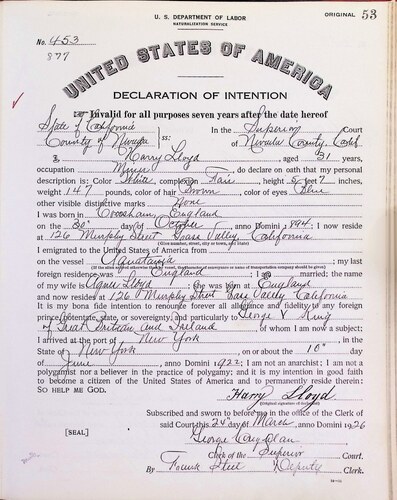 U. S. DEPARTMENT OF LABOR
NATURALIZATION SERVICE
ORIGINAL 53
No. 453
877
UNITED STATES OF AMERICA
DECLARATION OF INTENTION
Invalid for all purposes seven years after the date hereof
State of California
County of Nevada ss:
In the Superior Court
of Nevada County, Calif
I, Harry Lloyd, aged 31 years,
occupation Miner, do declare on oath that my personal
description is: Color White, complexion Fair, height 5 feet 7 inches,
weight 147 pounds, color of hair Brown, color of eyes Blue
other visible distinctive marks None
I was born in England
on the 30" day of October, anno Domini 1894; I now reside
at 126 Murphy Street Grass Valley California
(Give number, street, city or town, and State)
I emigrated to the United States of America from
on the vessel Aquatania; my last
(If the alien arrived otherwise than by vessel, the character of conveyance or name of transportation company should be given)
foreign residence was England; I am married; the name
of my wife is Agnes Lloyd; she was born at England
and now resides at 126 Murphy Street Grass Valley California
It is my bona fide intention to renounce forever all allegiance and fidelity to any foreign
prince, potentate, state, or sovereignty, and particularly to George V King
of Great Britain and Ireland, of whom I am now a subject;
I arrived at the port of New York, in the
State of New York, on or about the 10" day
of June, anno Domini 1922; I am not an anarchist; I am not a
polygamist nor a believer in the practice of polygamy; and it is my intention in good faith
to become a citizen of the United States of America and to permanently reside therein:
SO HELP ME GOD.
Harry Lloyd
(Original signature of declarant)
Subscribed and sworn to before me in the office of the Clerk of
said Court this 24" day of March, anno Domini 1926
[SEAL]
George
Clerk of the Superior Court.
By Steel Deputy Clerk.